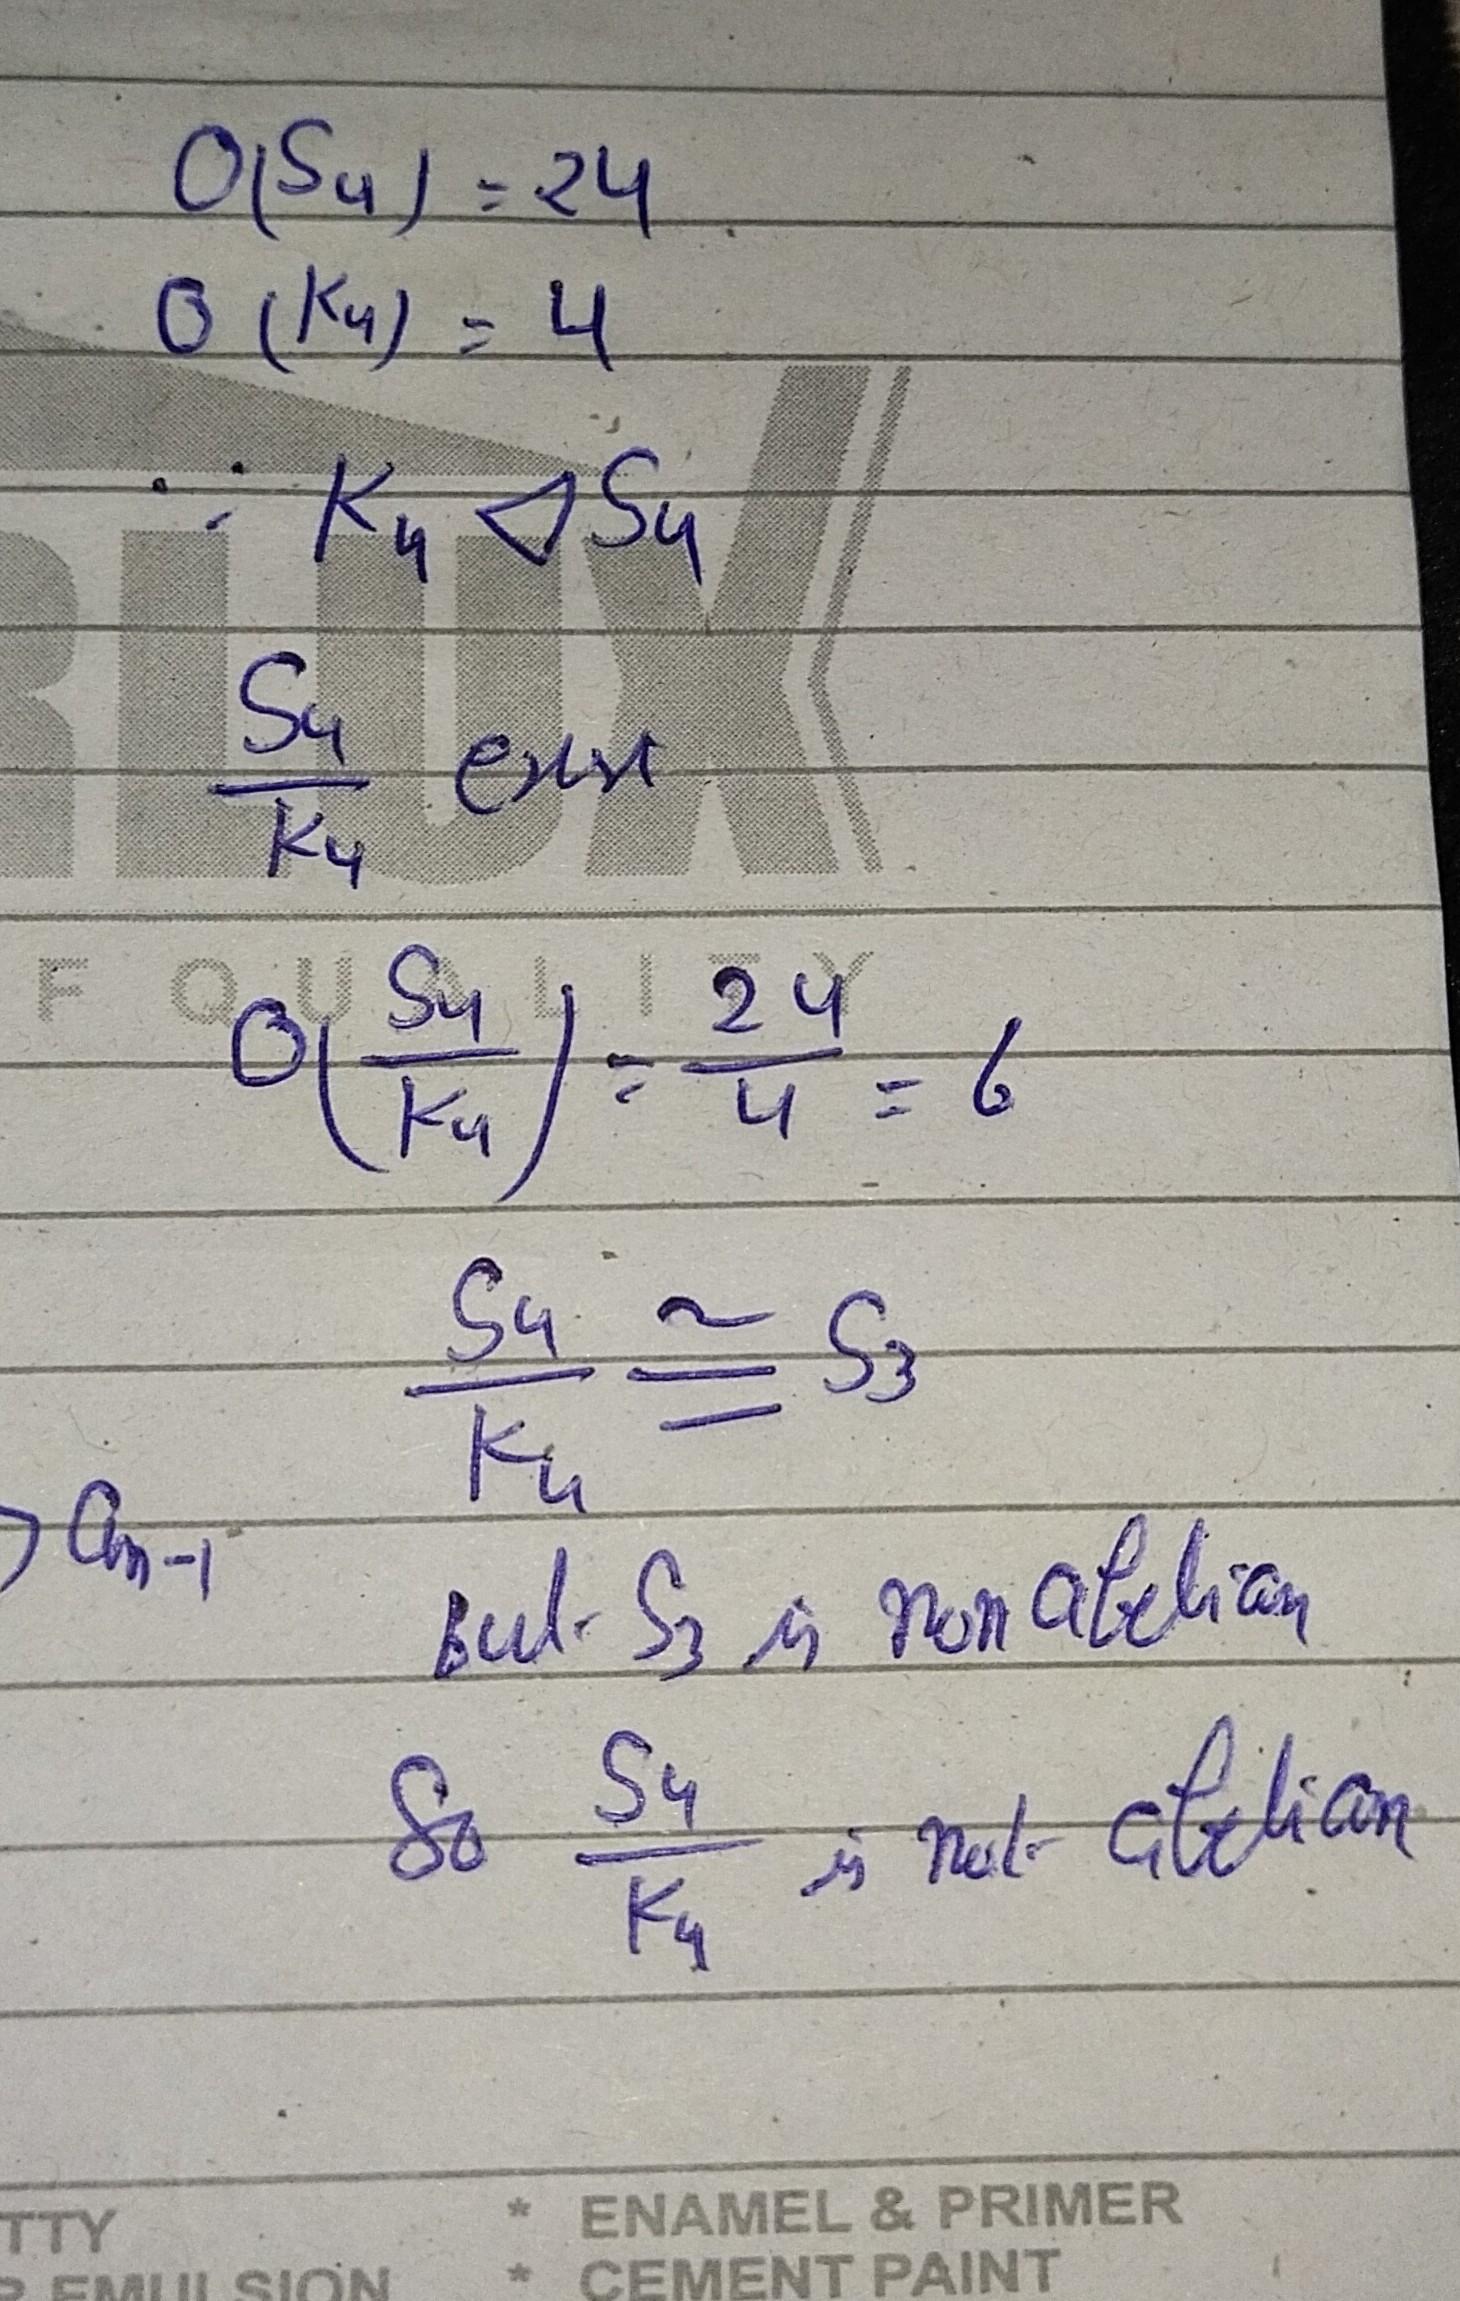 O(S₄) = 24
O(K₄) = 4
∵ K₄ ⊲ S₄
S₄/K₄ exist
F QUALITY
O(S₄/K₄) = 24/4 = 6
S₄/K₄ ≅ S₃
But S₃ is non abelian
So S₄/K₄ is not abelian
TTY
* ENAMEL & PRIMER
R EMULSION
* CEMENT PAINT